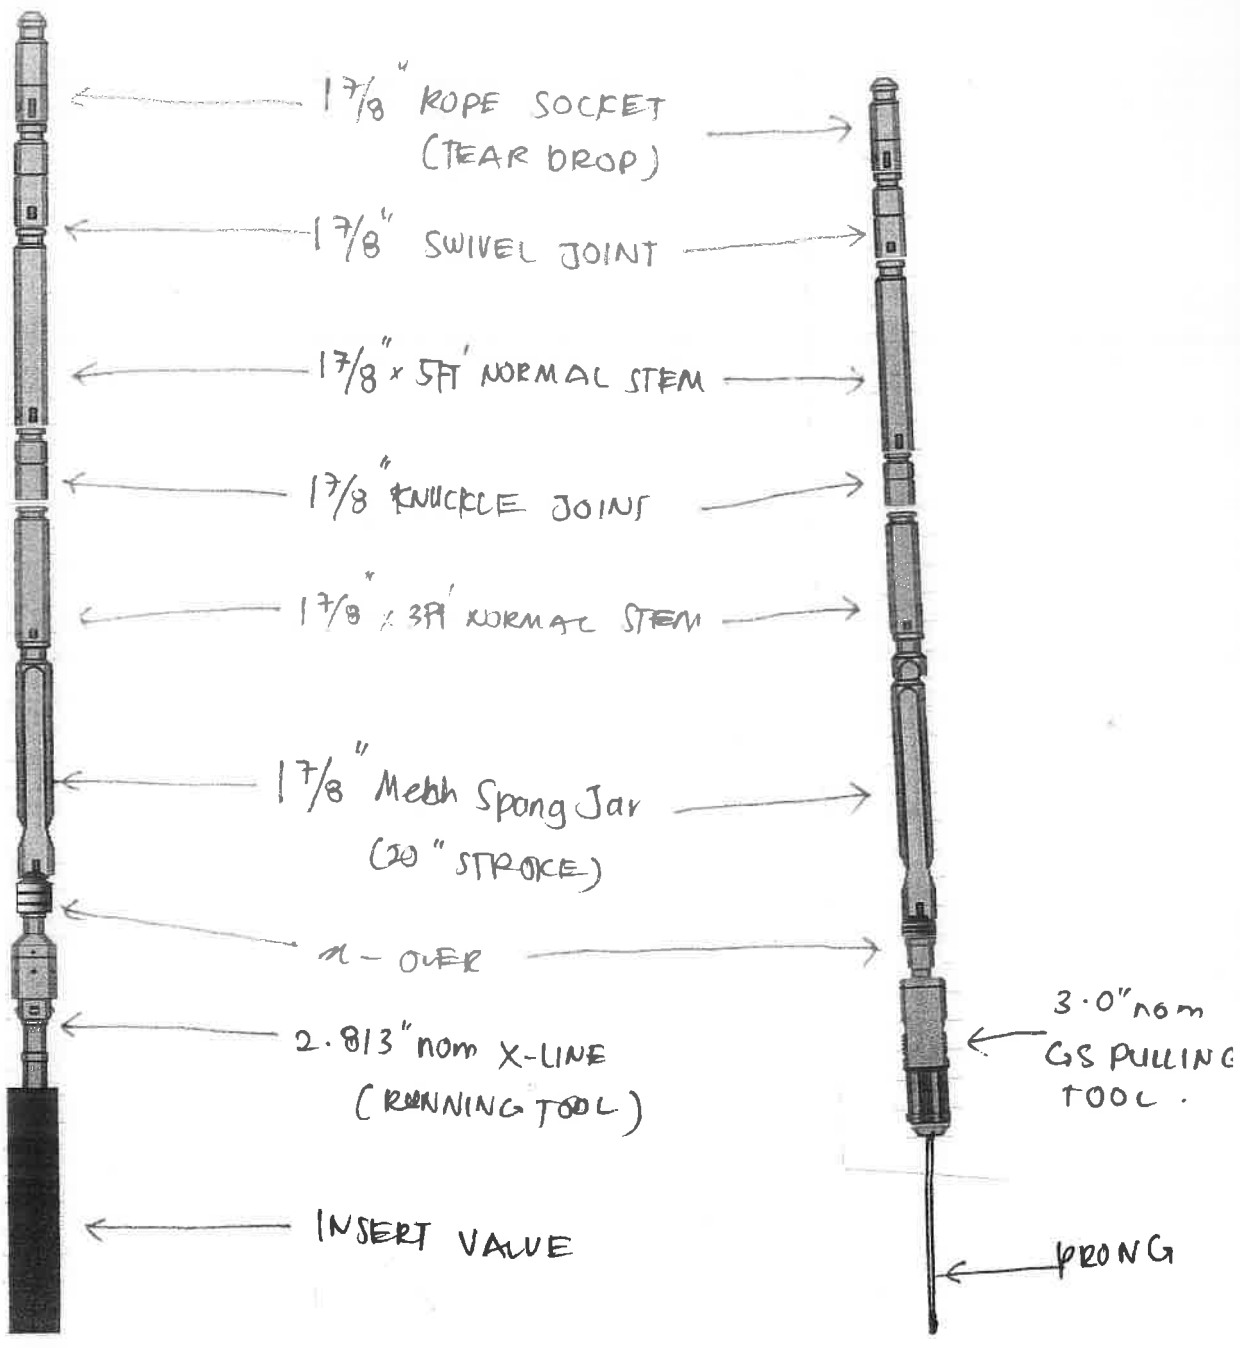 1 7/8" ROPE SOCKET
(TEAR DROP)
1 7/8" SWIVEL JOINT
1 7/8" x 5FT' NORMAL STEM
1 7/8" KNUCKLE JOINT
1 7/8" x 3FT' NORMAL STEM
1 7/8" Mech Spang Jar
(20" STROKE)
x - OVER
2.813" nom X-LINE
(RUNNING TOOL)
3.0" nom
GS PULLING
TOOL.
INSERT VALVE
PRONG